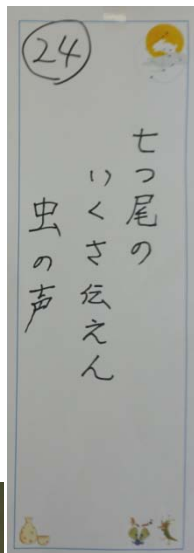 24
七つ尾の
いくさ伝えん
虫の声